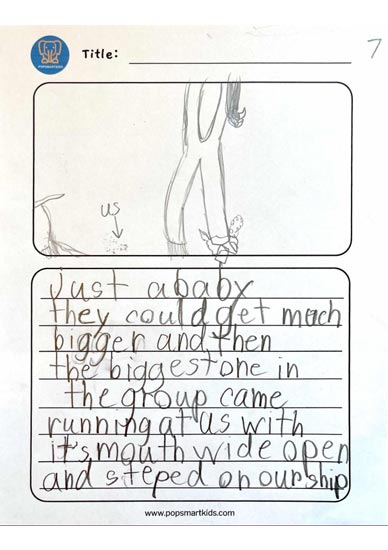 POPSMARTKIDS
Title:
7
us
just a baby
they could get much
bigger and then
the biggest one in
the group came
running at us with
it's mouth wide open
and steped on our ship
www.popsmartkids.com